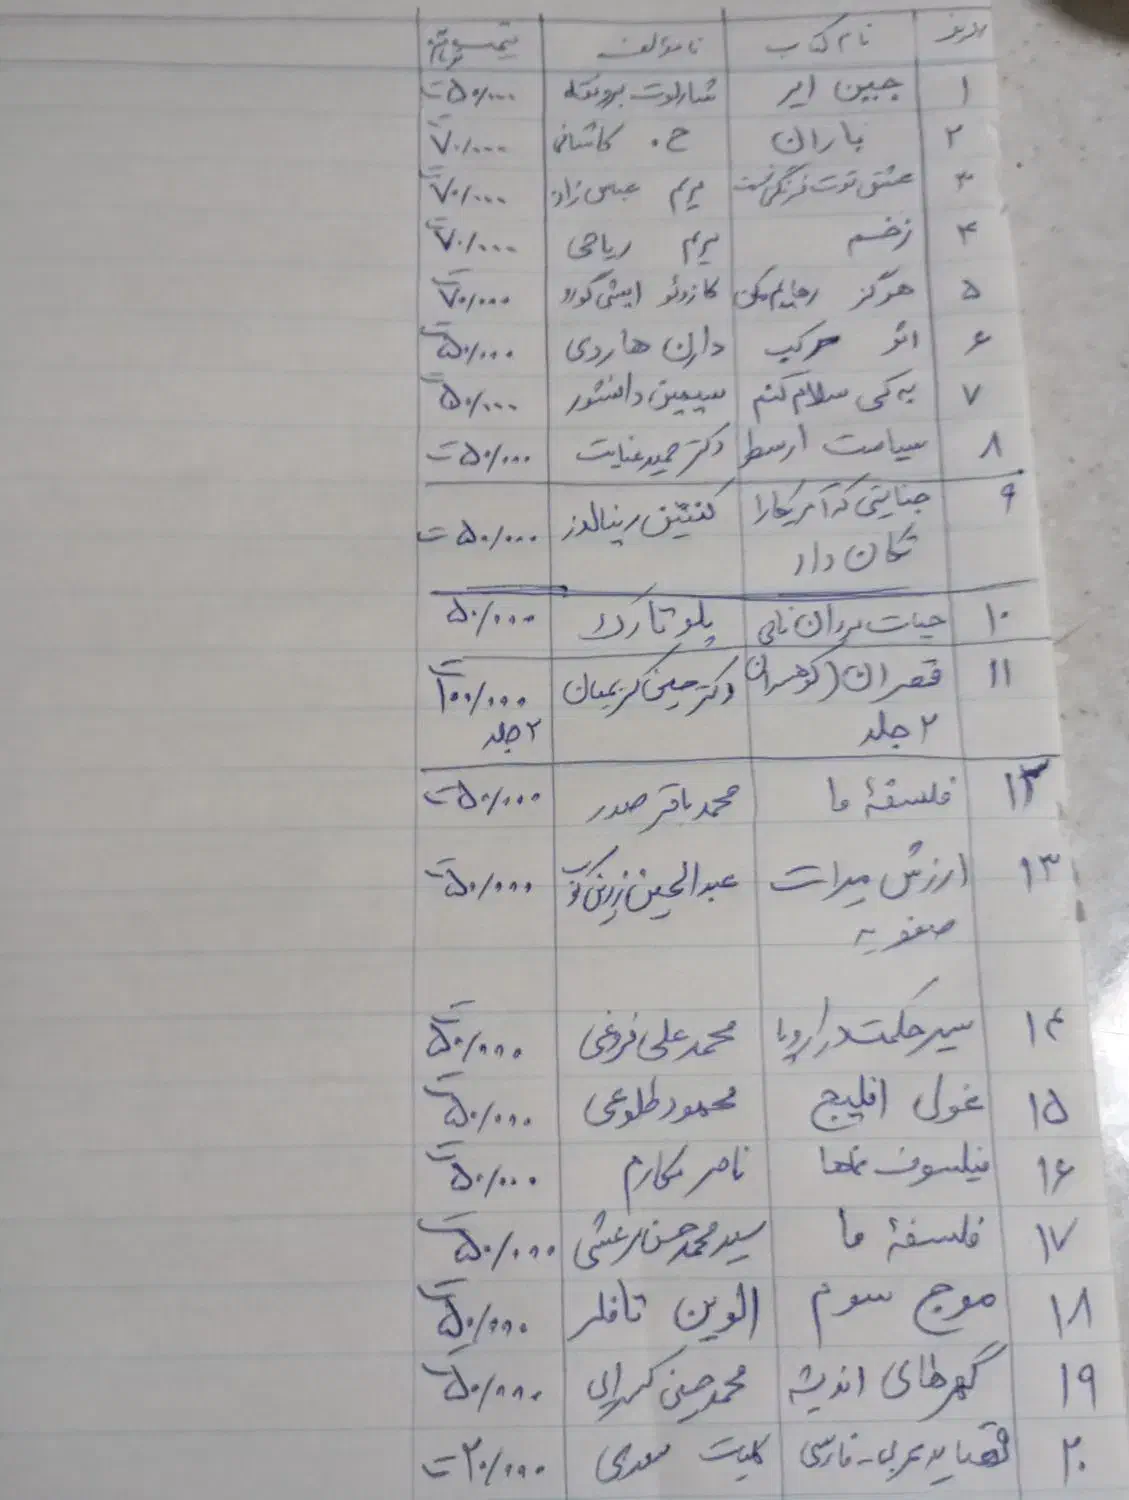 ردیف نام کتاب نام مؤلف قیمت به تومان
۱ جین ایر شارلوت برونته ۵۰/۰۰۰ ت
۲ باران ح. کاشانی ۷۰/۰۰۰ ت
۳ عشق توت فرنگی نیست مریم عباس زاده ۷۰/۰۰۰ ت
۴ زخم مریم ریاحی ۷۰/۰۰۰ ت
۵ هرگز رهایم مکن کازوئو ایشی گورو ۷۰/۰۰۰ ت
۶ اثر مرکب دارن هاردی ۵۰/۰۰۰ ت
۷ به کی سلام کنم سیمین دانشور ۵۰/۰۰۰ ت
۸ سیاست ارسطو دکتر حمید عنایت ۵۰/۰۰۰ ت
۹ جنایتی که آمریکا را کنتین رینالدز ۵۰/۰۰۰ ت
تکان داد
۱۰ حیات مردان نامی پلوتارک ۵۰/۰۰۰
۱۱ قصران (کوهسران دکتر حسین کریمان ۱۰۰/۰۰۰ ت
۲ جلد ۲ جلد
۱۲ فلسفهٔ ما محمد باقر صدر ۵۰/۰۰۰ ت
۱۳ ارزش میراث عبدالحسین زرین کوب ۵۰/۰۰۰ ت
صفویه
۱۴ سیر حکمت در اروپا محمد علی فروغی ۵۰/۰۰۰ ت
۱۵ غول افلیج محمود طلوعی ۵۰/۰۰۰ ت
۱۶ فیلسوف نماها ناصر مکارم ۵۰/۰۰۰ ت
۱۷ فلسفهٔ ما سید محمد حسن مرعشی ۵۰/۰۰۰ ت
۱۸ موج سوم الوین تافلر ۵۰/۰۰۰ ت
۱۹ گهرهای اندیشه محمد حسین ۵۰/۰۰۰ ت
۲۰ قصاید عربی - فارسی کلیات سعدی ۲۰/۰۰۰ ت